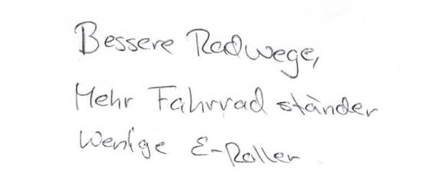 Bessere Radwege,
Mehr Fahrrad ständer
Wenige E-Roller